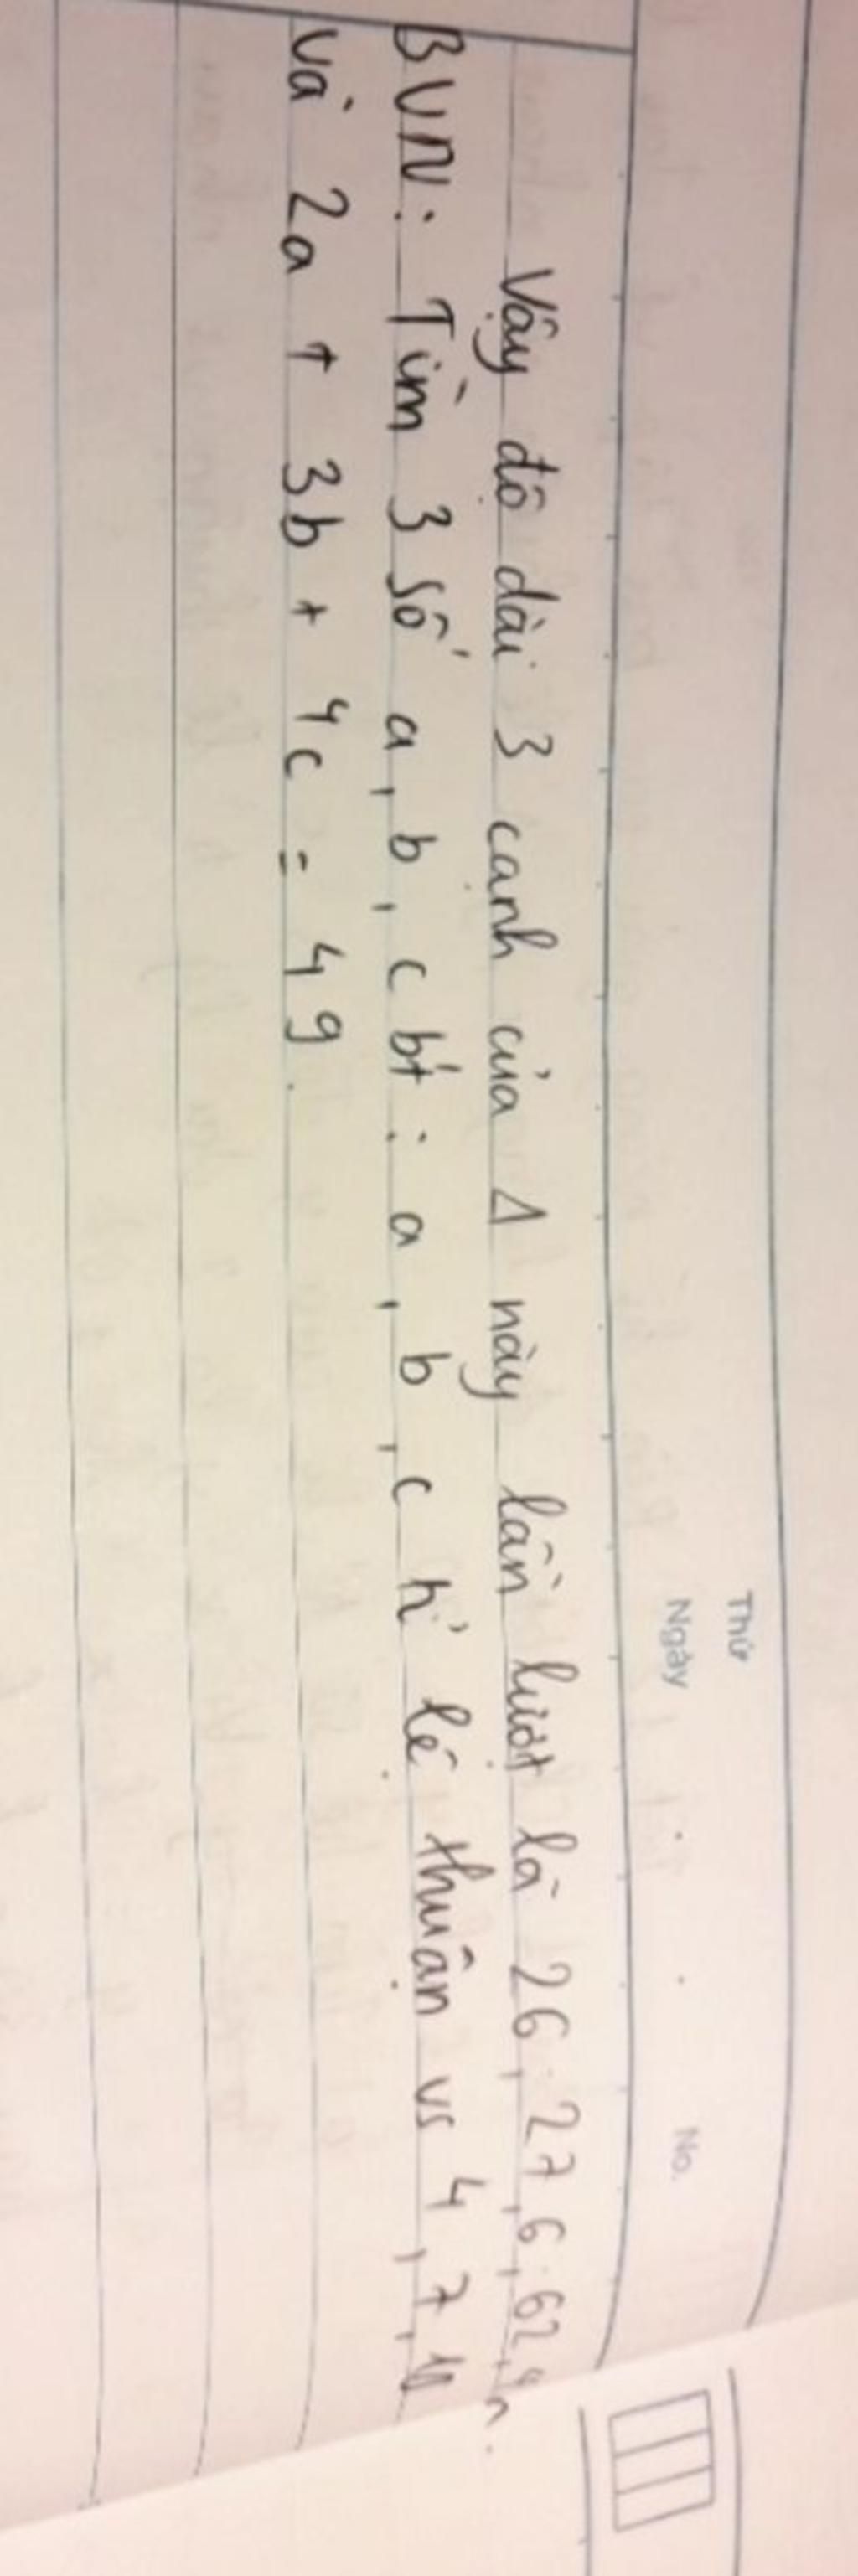 Thứ
Ngày No.
Vậy độ dài 3 cạnh của Δ này lần lượt là 26, 27,6, 62,
BVN: Tìm 3 số a, b, c bt: a, b, c tỉ lệ thuận vs 4, 7,
và 2a + 3b + 4c = 49.